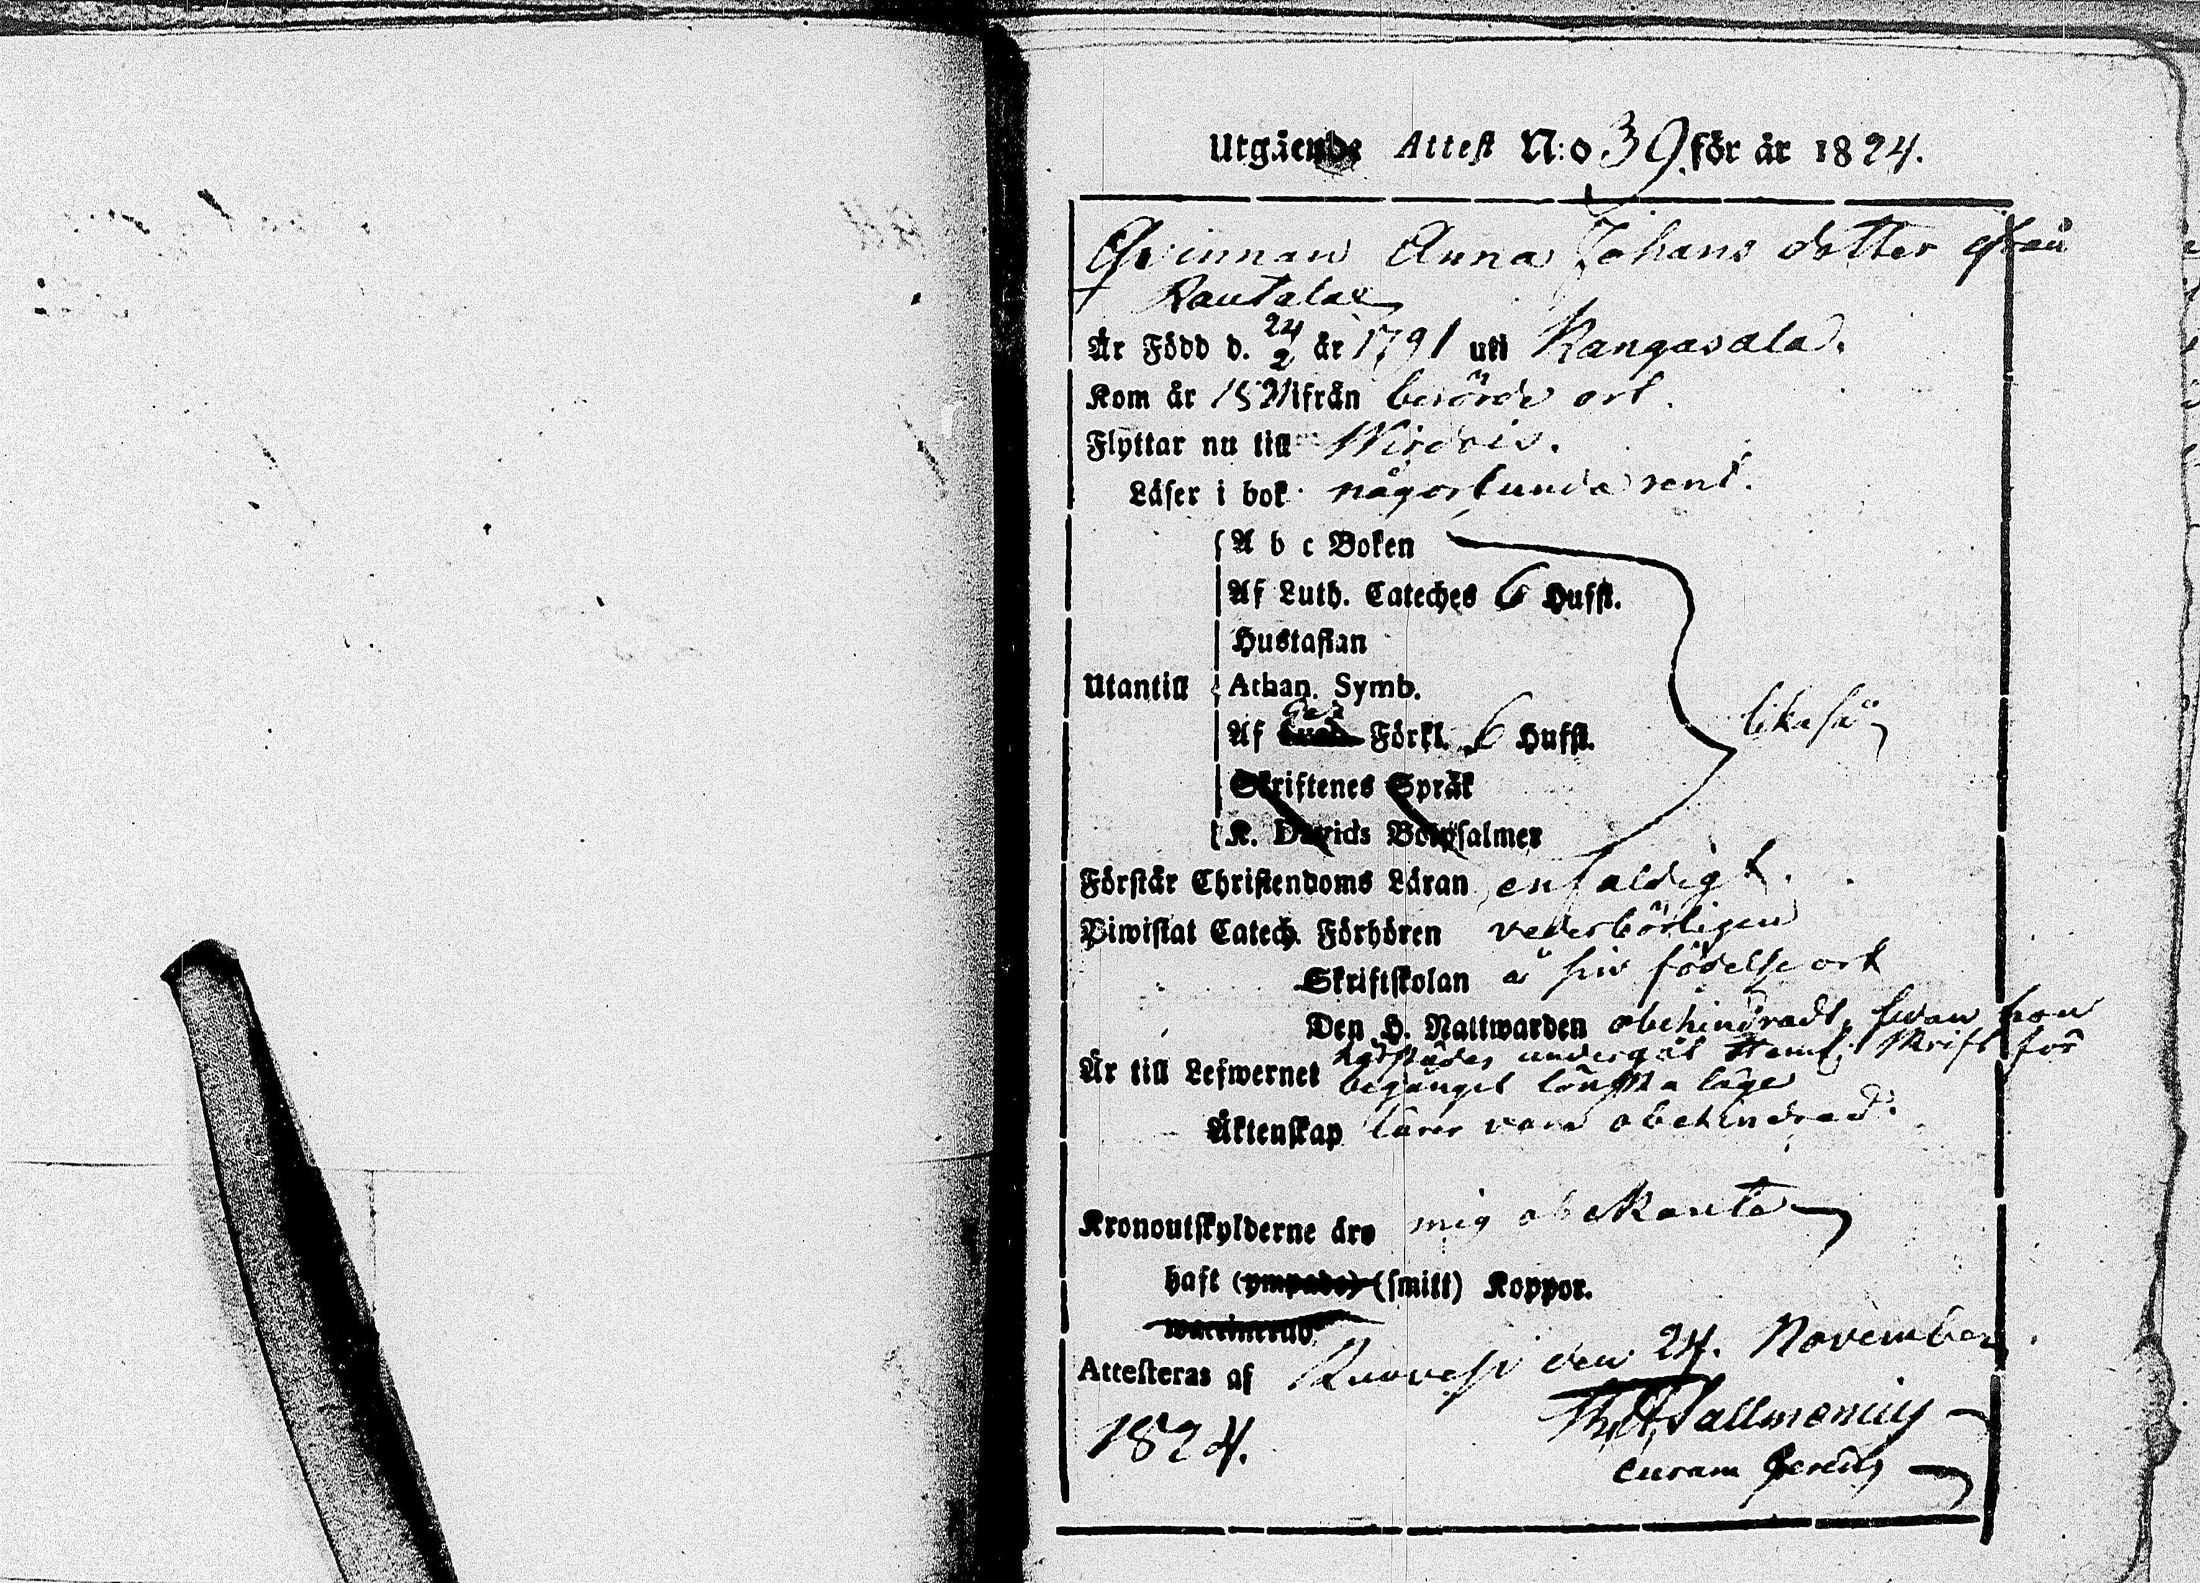 Utgående Attest N:o 39. för år 1824.
Qvinnan Anna Johans dotter ifrån
Rautalax
Är Född d. 24/2 år 1791 uti Kangasala.
Kom år 1821 ifrån berörde ort.
Flyttar nu till Wirdois.
Läser i bok någorlunda rent.
A b c Boken
Af Luth. Cateches 6 Hufst.
Hustaflan
Utantill Athan. Symb.
Af Förkl. 6 Hufst. likaså
Skriftenes Språk
K. Davids Botpsalmer
Förstår Christendoms Läran enfaldigt.
Biwistat Catech. Förhören vederbörligen
Skriftskolan å sin födelse ort
Den H. Nattwarden obehindradt, hon
Är till Lefwernet härstädes undergåt Heml. Skrift för
begånget lönska läge
Äktenskap lärer vara obehindrad.
Kronoutskylderne äro mig obekanta
haft (ympade) (smitt) Koppor.
waccinerad.
Attesteras af Ruovesi den 24. November
1824. Sallmenius
curam gerens